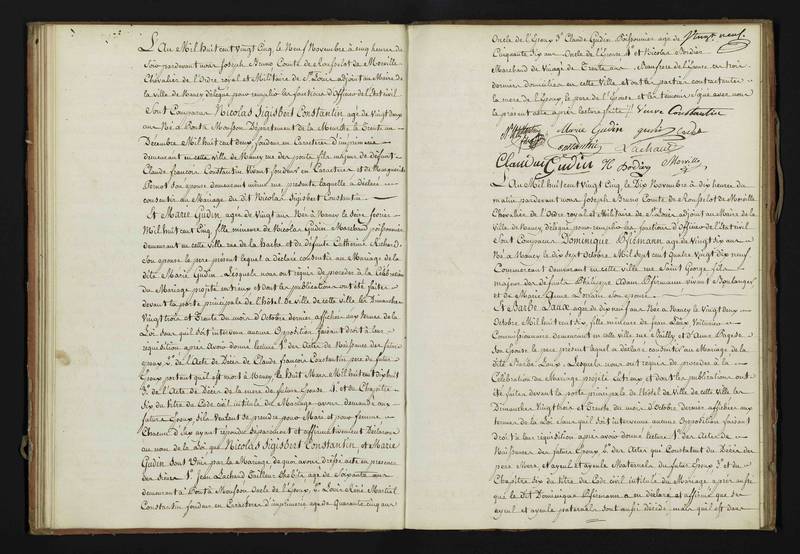 L'An Mil huit cent vingt Cinq, le Neuf Novembre à cinq heures du
Soir pardevant nous Joseph Bruno Comte de Rousselot de Morville
Chevalier de l'Ordre royal et Militaire de St Louis adjoint au Maire de
la Ville de Nancy délégué pour remplir les fonctions d'Officier de l'Etat civil
Sont Comparus Nicolas Sigisbert Constantin, agé de Vingt deux
ans Né à Pont à Mousson Département de la Meurthe le trente un
Décembre Mil huit cent deux fondeur en Caractères d'imprimerie
demeurant en cette ville de Nancy rue des ponts fils majeur de défunt
Claude françois Constantin Vivant fondeur en Caractères et de Marguerite
Pernot son épouse demeurant même rue présente laquelle a déclaré
consentir au Mariage du dit Nicolas Sigisbert Constantin
Et Marie Gudin agée de Vingt ans Née à Nancy le seize février
Mil huit Cent Cinq, fille mineure de Nicolas Gudin Marchand poissonnier
demeurant en cette ville rue de la hache et de défunte Catherine Richard
Son épouse le père présent lequel a déclaré consentir au Mariage de la
dite Marie Gudin. Lesquels nous ont requis de procéder à la Célébration
du Mariage projeté entr'eux et dont les publications ont été faites
devant la porte principale de l'hôtel de Ville de cette ville les Dimanches
Vingt trois et trente du mois d'Octobre dernier affichées aux termes de la
Loi sans qu'il soit intervenu aucune Opposition faisant droit à leur
réquisition après avoir donné lecture 1° des Actes de Naissance des futurs
époux 2° de l'Acte de Décès de Claude françois Constantin père du futur
Epoux portant qu'il est mort à Nancy le huit Mars Mil huit cent dix huit
3° de l'Acte de Décès de la mère de la future Epouse 4° et du Chapitre
Six du titre du Code civil intitulé du Mariage avons demandé aux
futurs Epoux s'ils veulent se prendre pour Mari et pour femme
Chacun d'eux ayant répondu séparément et affirmativement Déclarons
au nom de la Loi que Nicolas Sigisbert Constantin, et Marie
Gudin sont Unis par le Mariage de quoi avons dressé acte en présence
des Sieurs 1° Jean Lachaud tailleur d'habits agé de Soixante ans
demeurant à Pont à Mousson Oncle de l'Epoux, 2° Louis René Martial
Constantin fondeur en Caractères d'imprimerie agé de quarante cinq ans
Oncle de l'Epoux 3° Claude Gudin Poissonnier agé de Vingt neuf.
Cinquante Six ans Oncle de l'Epouse 4° et Nicolas Bodier
Marchand de Vinaigre de trente ans de l'Epouse ces trois
derniers domiciliés en cette Ville et ont les parties contractantes
la mère de l'Epoux le père de l'Epouse et les témoins signé avec nous
le présent acte après lecture faite // Veuve Constantin
Marie Gudin gudin
constantin Lachaud
Claudui Gudin N Bodiez Morville
L'An Mil huit cent vingt Cinq le Dix Novembre à Dix heures du
matin pardevant nous Joseph Bruno Comte de Rousselot de Morville
Chevalier de l'Ordre royal et Militaire de St Louis adjoint au Maire de la
Ville de Nancy délégué pour remplir les fonctions d'Officier de l'Etat civil
Sont Comparus Dominique Pfirmann agé de Vingt six ans
Né à Nancy le dix sept Octobre Mil Sept cent Quatre Vingt dix neuf
Commerçant demeurant en cette ville rue Saint George fils
majeur des défunts Philippe Adam Pfirmann vivant Boulanger
et de Marie Anne Lorrain son épouse
Et Barbe Laux agée de dix neuf ans Née à Nancy le Vingt deux
Octobre Mil huit cent six, fille mineure de Jean Laux Voiturier
Commissionnaire demeurant en cette ville rue Bailly et d'Anne
Son épouse le père présent lequel a déclaré consentir au Mariage de la
dite Barbe Laux. Lesquels nous ont requis de procéder à la
Célébration du Mariage projeté entr'eux et dont les publications ont
été faites devant la porte principale de l'hôtel de Ville de cette ville les
Dimanches Vingt trois et trente du mois d'Octobre dernier affichées aux
termes de la Loi sans qu'il soit intervenu aucune Opposition faisant
droit à leur réquisition après avoir donné lecture 1° des Actes de
Naissance des futurs Epoux 2° des Actes qui Constatent le Décès des
père Mère, et ayeul et ayeule Maternels du futur Epoux 3° et du
Chapitre Six du titre du Code civil intitulé du Mariage après aussi
que le dit Dominique Pfirmann a eu déclaré et affirmé que ses
ayeul et ayeule paternels sont aussi décédés mais qu'il est dans